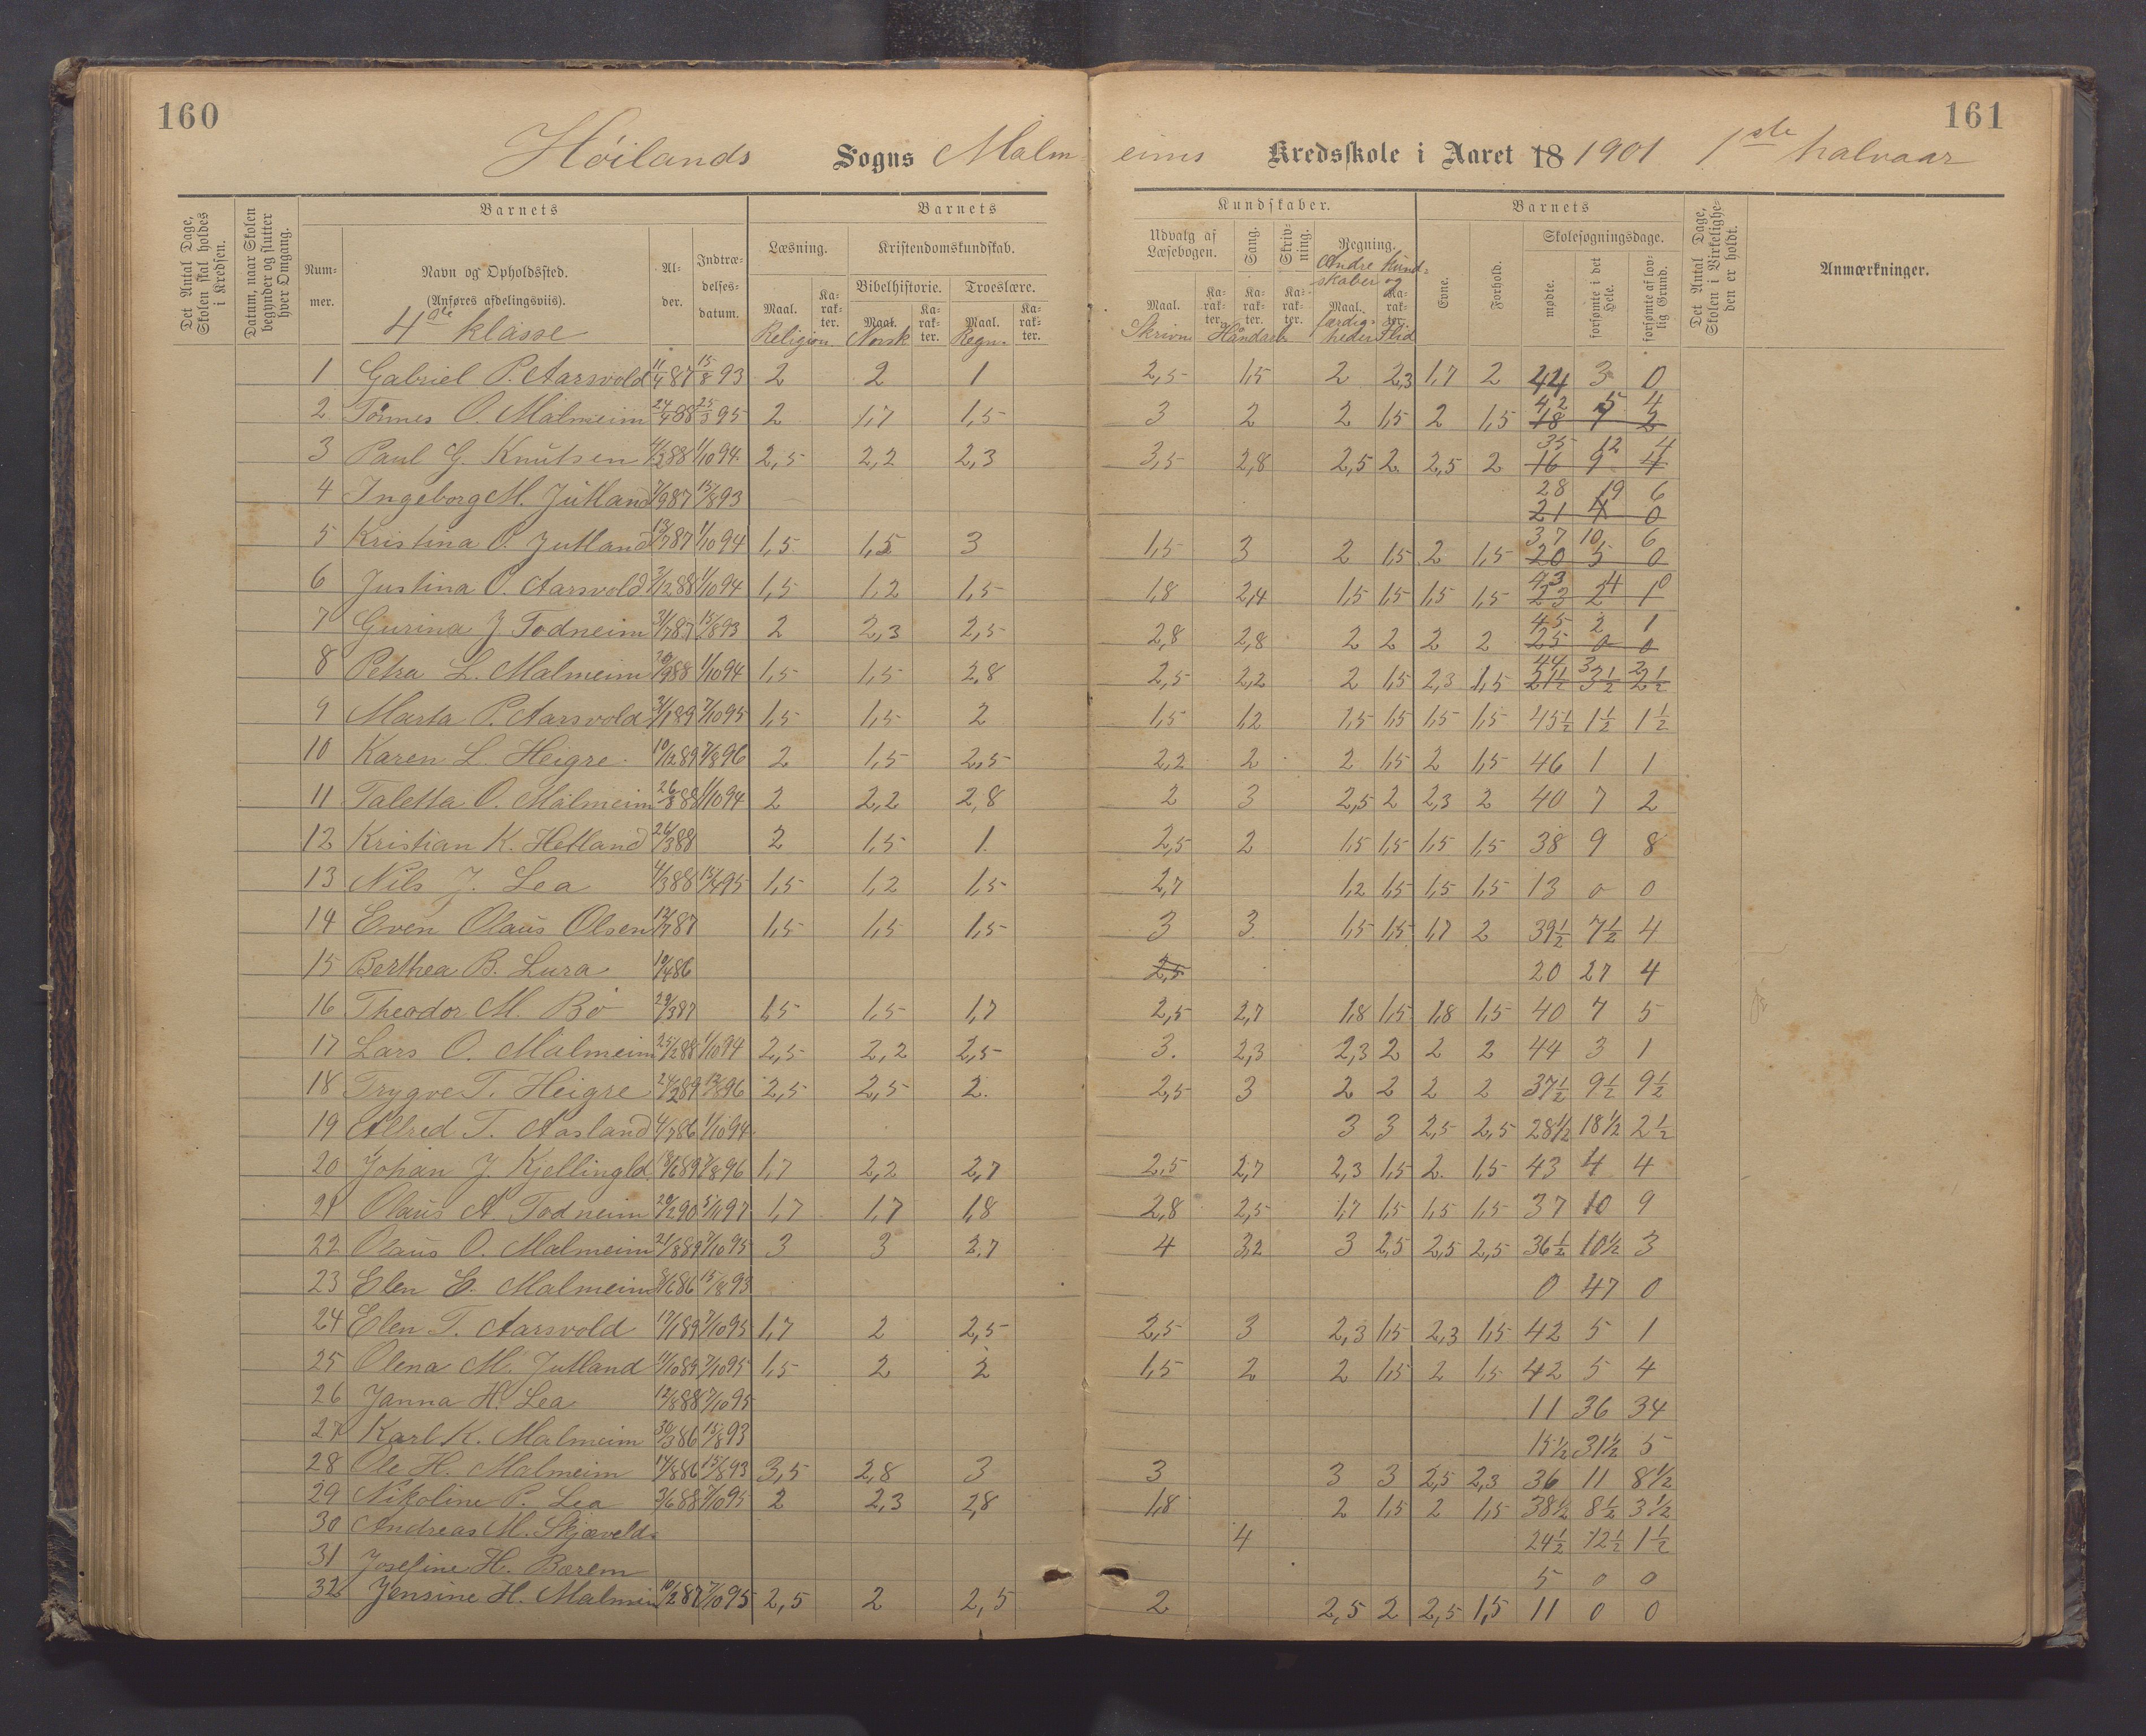 160
161
Høilands Sogns Malmeims Kredsskole i Aaret 18 1901 1ste halvaar
Det Antal Dage, Skolen skal holdes i Kredsen.
Datum, naar Skolen begynder og slutter hver Omgang.
Barnets
Barnets
Kundskaber.
Barnets
Det Antal Dage, Skolen i Virkelighe-den er holdt.
Anmærkninger.
Num-mer.
Navn og Opholdssted.
(Anføres afdelingsviis).
4de klasse
Al-der.
Indtræ-delses-datum.
Læsning.
Kristendomskundskab.
Bibelhistorie.
Troeslære.
Udvalg af Læsebogen.
Sang.
Skriv-ning.
Regning.
Andre Kund-skaber og færdig-heder
Evne.
Forhold.
Skolesøgningsdage.
mødte.
forsømte i det Hele.
forsømte af lov-lig Grund.
Maal. Ka-rak-ter. Maal. Ka-rak-ter. Maal. Ka-rak-ter. Maal. Ka-rak-ter. Ka-rak-ter. Ka-rak-ter. Maal. Ka-rak-ter.
Religion Norsk Regn. Skrivn Håndarb Flid
1 Gabriel P. Aarsvold 11/4 87 15/8 93 2 2 1 2,5 1,5 2 2,3 1,7 2 44 3 0
2 Tønnes O. Malmeim 24/4 88 25/3 95 2 1,7 1,5 3 2 2 1,5 2 1,5 42 5 4
18 7 2
3 Paul G. Knutsen 4/2 88 1/10 94 2,5 2,2 2,3 3,5 2,8 2,5 2 2,5 2 35 12 4
16 9 4
4 Ingeborg M. Jutland 7/9 87 15/8 93 28 19 6
21 4 0
5 Kristina O. Jutland 13/7 87 1/10 94 1,5 1,5 3 1,5 3 2 1,5 2 1,5 37 10 6
20 5 0
6 Justina O. Aarsvold 3/12 88 1/10 94 1,5 1,2 1,5 1,8 2,4 1,5 1,5 1,5 1,5 43 4 0
23 2 1
7 Gurina J Todneim 31/7 87 15/8 93 2 2,3 2,5 2,8 2,8 2 2 2 2 45 2 1
25 0 0
8 Petra L. Malmeim 20/9 88 1/10 94 1,5 1,5 2,8 2,5 2,2 2 1,5 2,3 1,5 44 3 2
21½ 3½ 2½
9 Marta P. Aarsvold 31/1 89 7/10 95 1,5 1,5 2 1,5 1,2 1,5 1,5 1,5 1,5 45½ 1½ 1½
10 Karen L. Heigre 10/12 89 7/8 96 2 1,5 2,5 2,2 2 2 1,5 2 1,5 46 1 1
11 Taletta O. Malmeim 26/8 88 1/10 94 2 2,2 2,8 2 3 2,5 2 2,3 2 40 7 2
12 Kristian K. Helland 26/3 88 2 1,5 1. 2,5 2 1,5 1,5 1,5 1,5 38 9 8
13 Nils J. Lea 4/3 88 15/4 95 1,5 1,2 1,5 2,7 1,2 1,5 1,5 1,5 13 0 0
14 Even Olaus Olsen 12/7 87 1,5 1,5 1,5 3 3 1,5 1,5 1,7 2 39½ 7½ 4
15 Berthea B. Lura 10/4 86 2,5 20 27 4
16 Theodor M. Bø 29/3 87 1,5 1,5 1,7 2,5 2,7 1,8 1,5 1,8 1,5 40 7 5
17 Lars O. Malmeim 25/2 88 1/10 94 2,5 2,2 2,5 3. 2,3 2,3 2 2 2 44 3 1
18 Trygve T. Heigre 24/2 89 13/8 96 2,5 2,5 2. 2,5 3 2 2 2 2 37½ 9½ 9½
19 Alfred T. Aasland 4/7 86 1/10 94 3 3 2,5 2,5 28½ 18½ 2½
20 Johan J. Kjellingld. 18/6 89 7/8 96 1,7 2,2 2,7 2,5 2,7 2,3 1,5 2. 1,5 43 4 4
21 Olaus A. Todneim 20/2 90 5/11 97 1,7 1,7 1,8 2,8 2,5 1,7 1,5 1,5 1,5 37 10 9
22 Olaus O. Malmeim 21/8 89 7/10 95 3 3 2,7 4 3,2 3 2,5 2,5 2,5 36½ 10½ 3
23 Elen E. Malmeim 8/6 86 15/8 93 0 47 0
24 Elen T. Aarsvold 17/1 89 7/10 95 1,7 2 2,5 2,5 3 2,3 1,5 2,3 1,5 42 5 1
25 Olena M. Jutland 11/10 89 7/10 95 1,5 2 2 1,5 2 2 1,5 2 1,5 42 5 4
26 Janna H. Lea 12/8 88 7/10 95 11 36 34
27 Karl K. Malmeim 30/3 86 15/8 93 15½ 31½ 5
28 Ole H. Malmeim 14/8 86 15/8 93 3,5 2,8 3 3 3 3 2,5 2,3 36 11 8½
29 Nikoline P. Lea 3/6 88 7/10 95 2 2,3 2,8 1,8 2 1,5 2 1,5 38½ 8½ 3½
30 Andreas M. Skjæveld. 4 24½ 12½ 1½
31 Josefine H. Bærem 5 0 0
32 Jensine H. Malmeim 10/2 87 7/10 95 2,5 2 2,5 2 2,5 2 2,5 1,5 11 0 0